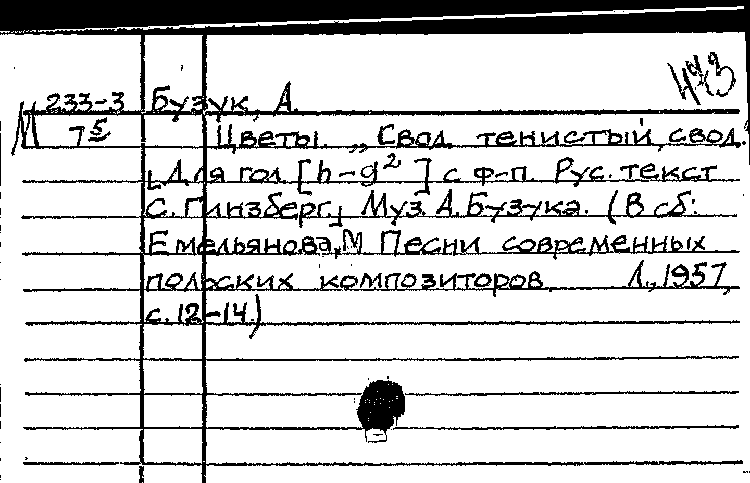 473
М 233-3 Бузук, А.
75 Цветы. „Свод тенистый, свод."
[Для гол. [h-g²] с ф-п. Рус. текст
С. Гинзберг.] Муз. А. Бузука. (В сб:
Емельянова, М Песни современных
польских композиторов. Л., 1957,
с. 12-14.)